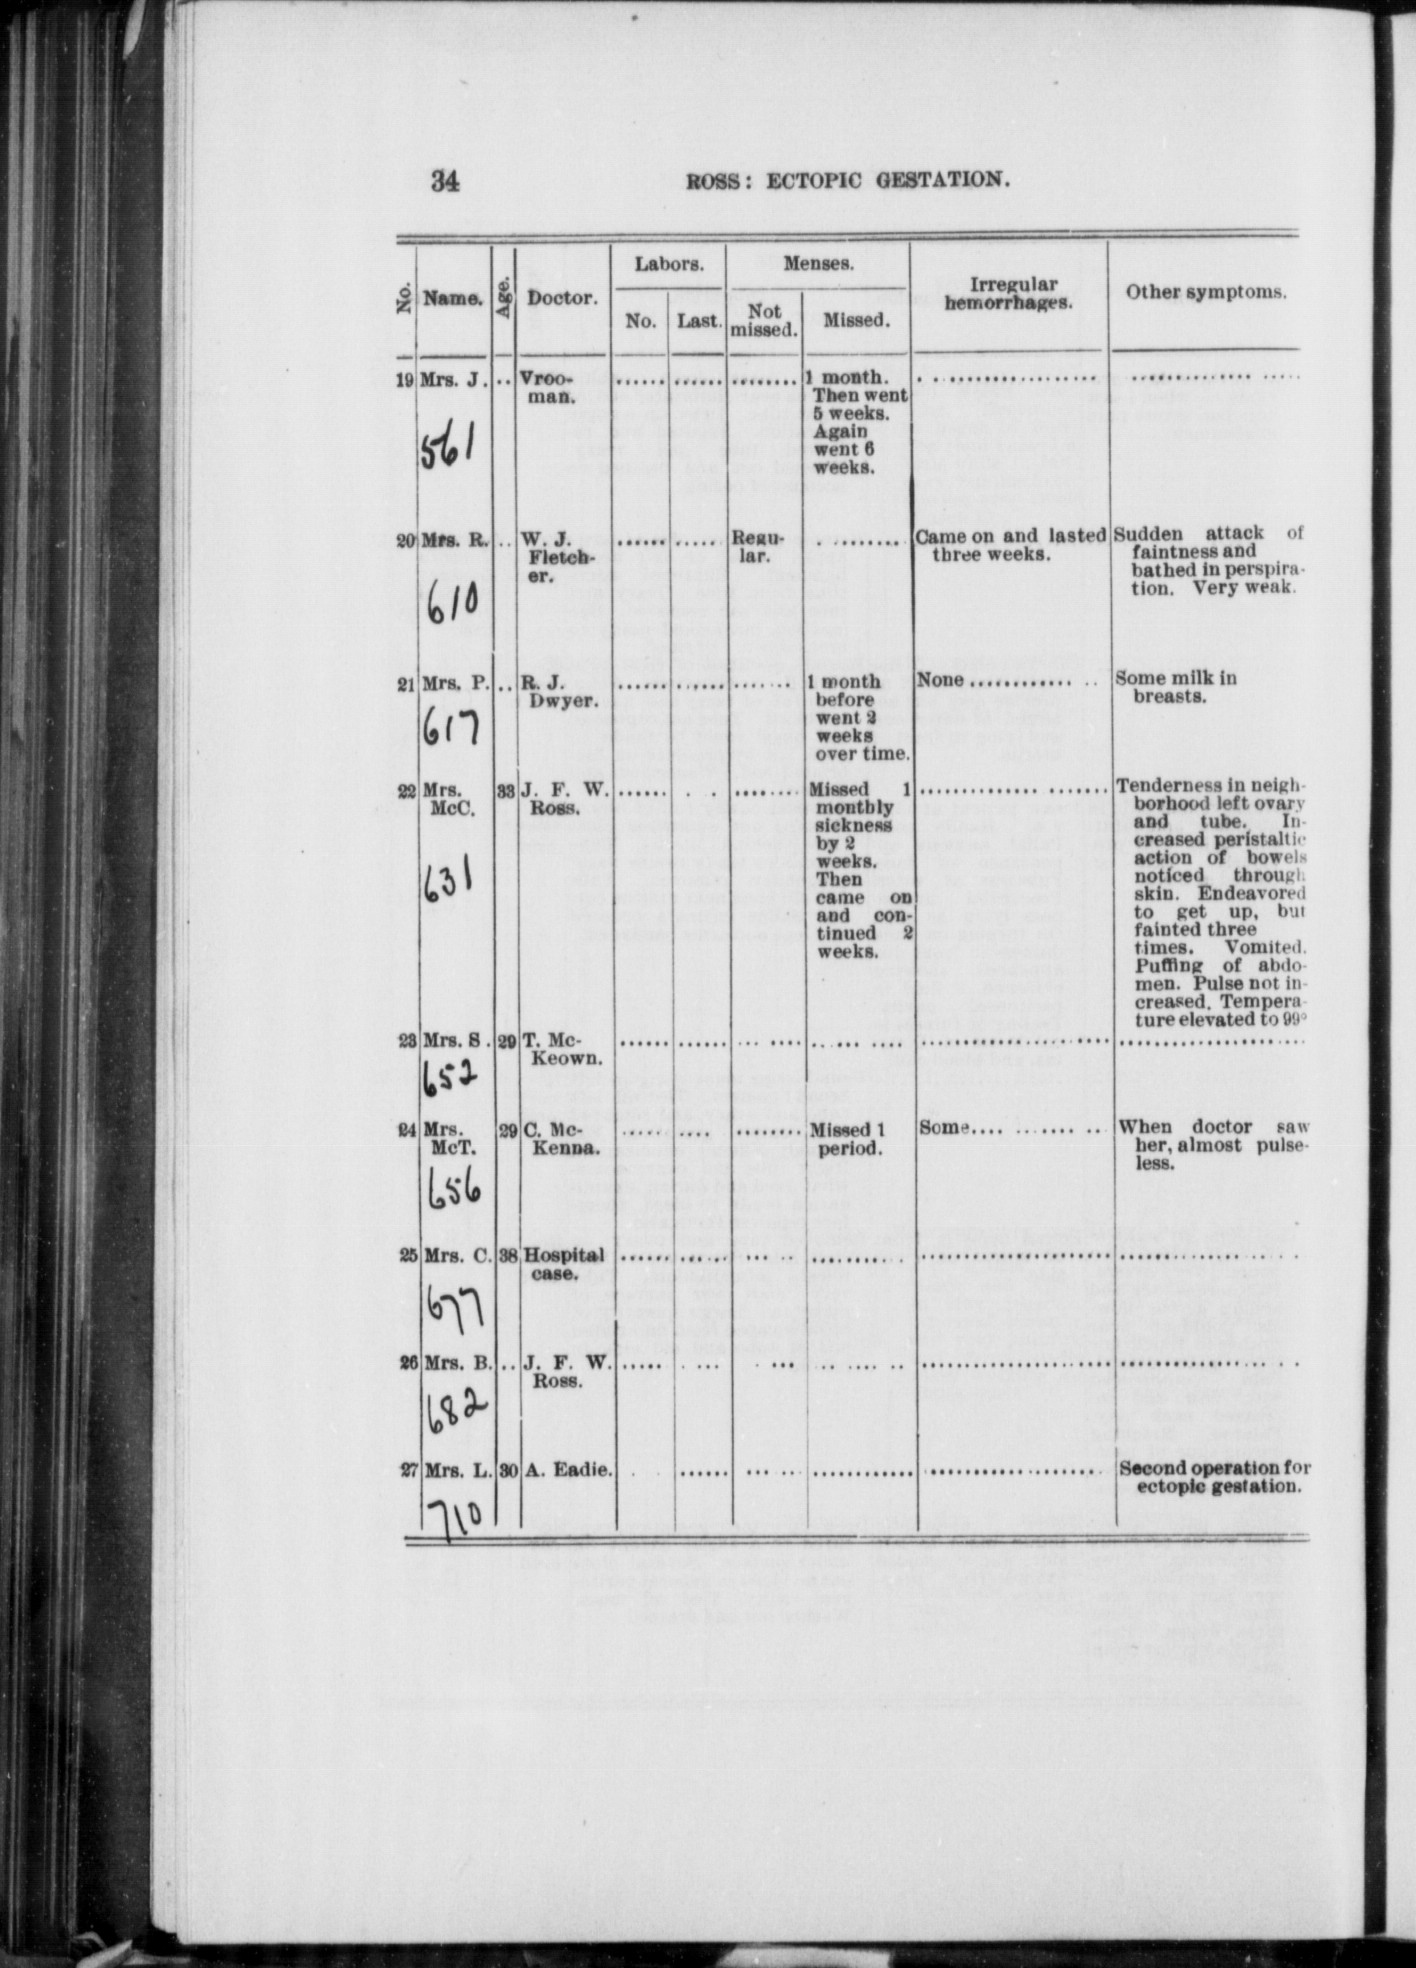 34
ROSS: ECTOPIC GESTATION.
No. Name. Age. Doctor. Labors. Menses. Irregular hemorrhages. Other symptoms.
No. Last. Not missed. Missed.
19 Mrs. J. .. Vroo-
man.
1 month.
Then went
5 weeks.
Again
went 6
weeks.
561
20 Mrs. R. .. W. J.
Fletch-
er.
Regu-
lar.
Came on and lasted
three weeks.
Sudden attack of
faintness and
bathed in perspira-
tion. Very weak.
610
21 Mrs. P. .. R. J.
Dwyer.
1 month
before
went 2
weeks
over time.
None
Some milk in
breasts.
617
22 Mrs.
McC.
33 J. F. W.
Ross.
Missed 1
monthly
sickness
by 2
weeks.
Then
came on
and con-
tinued 2
weeks.
Tenderness in neigh-
borhood left ovary
and tube. In-
creased peristaltic
action of bowels
noticed through
skin. Endeavored
to get up, but
fainted three
times. Vomited.
Puffing of abdo-
men. Pulse not in-
creased. Tempera-
ture elevated to 99°
631
23 Mrs. S. 29 T. Mc-
Keown.
652
24 Mrs.
McT.
29 C. Mc-
Kenna.
Missed 1
period.
Some
When doctor saw
her, almost pulse-
less.
656
25 Mrs. C. 38 Hospital
case.
677
26 Mrs. B. .. J. F. W.
Ross.
682
27 Mrs. L. 30 A. Eadie.
Second operation for
ectopic gestation.
710